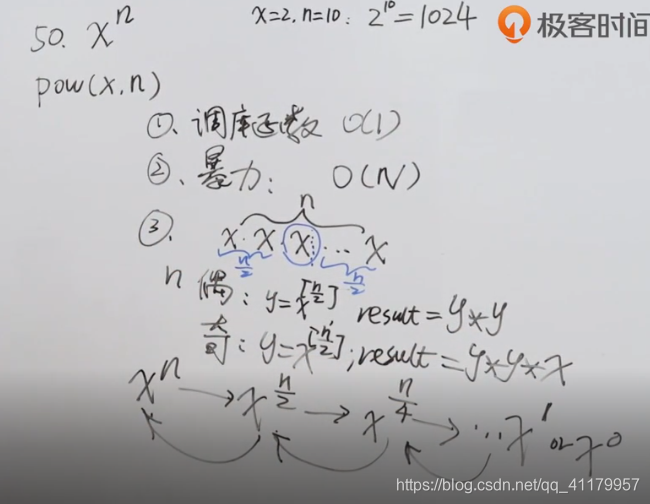 50. xⁿ
x=2. n=10: 2¹⁰=1024
极客时间
pow(x.n)
①、调库函数 O(1)
②、暴力: O(N)
n
③. x·x·x…x
n/2 n/2
n 偶: y=x^[n/2] result=y*y
奇: y=x^[n/2]; result=y*y*x
xⁿ→x^(n/2)→x^(n/4)→…x¹ or x⁰
https://blog.csdn.net/qq_41179957